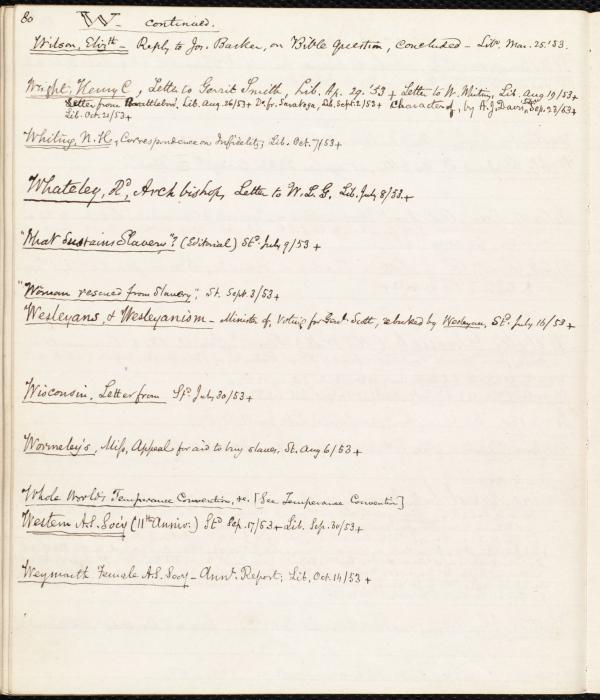 80 W. continued.
Wilson, Elizth - Reply to Jos. Barker, on Bible question, concluded - Libr. Mar. 25. '53.
Wright, Henry C, Letter to Gerrit Smith, Lib. Ap. 29. '53 + Letter to N. Whiting, Lib. Aug 19/53 +
Letter from Brattleboro, Lib. Aug. 26/53 + Do. fr. Saratoga, Lib. Sept. 2/53 + Character of, by A. J. Davis, Sep. 23/53 +
Lib. Oct. 21/53 +
Whiting, N. H., Correspondence on Infidelity, Lib. Oct. 7/53 +
Whateley, Rd, Archbishop, Letter to W. L. G. Lib. July 8/53. +
"What Sustains Slavery"? (Editorial) Std. July 9/53 +
"Woman rescued from Slavery", St. Sept. 3/53 +
Wesleyans, & Wesleyanism - Minister of, voting for Genl. Scott, rebuked by Wesleyan, Std. July 16/53 +
Wisconsin, Letter from Std. July 30/53 +
Wormeley's, Miss, Appeal for aid to buy slaves, St. Aug 6/53 +
Whole World's Temperance Convention, &c. [See Temperance Convention]
Western A. S. Socy (11th Anniv.) Std Sep. 17/53 + Lib. Sep. 30/53 +
Weymouth Female A. S. Socy - Annl. Report; Lib. Oct. 14/53 +